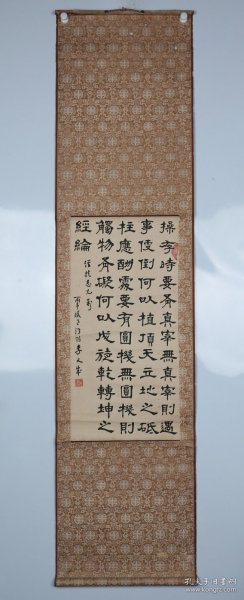 操存時要有真宰無真宰則遇
事便倒何以植頂天立地之砥
柱應酬處要有圓機無圓機則
觸物有礙何以成旋乾轉坤之
經綸
孔夫子旧书网